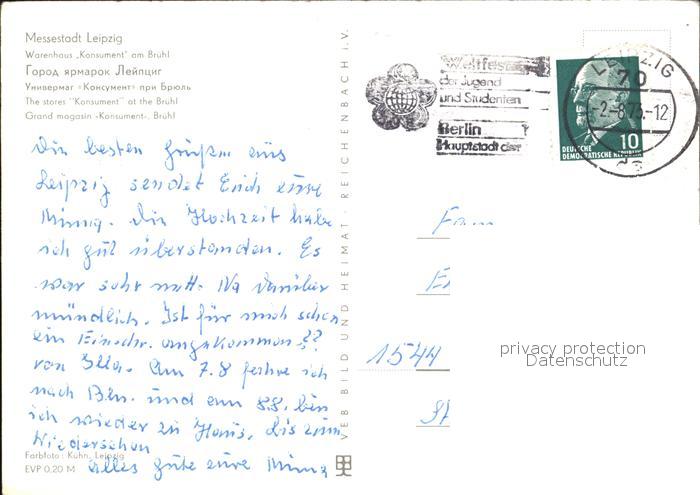 Messestadt Leipzig
Warenhaus „Konsument" am Brühl
Город ярмарок Лейпциг
Универмаг «Консумент» при Брюль
The stores "Konsument" at the Brühl
Grand magasin «Konsument», Brühl
Die besten Grüße aus
Leipzig sendet Euch eure
Minna. Die Hochzeit habe
ich gut überstanden. Es
war sehr nett. Na darüber
mündlich. Ist für mich schon
ein Einschr. angekommen??
von Illa. Am 7.8 fahre ich
nach Bln. und am 8.8. bin
ich wieder zu Haus, bis zum
Wiedersehen
alles gute eure Minna
Farbfoto: Kühn, Leipzig
EVP 0,20 M
VEB BILD UND HEIMAT · REICHENBACH I. V.
Weltfes
der Jugend
und Studenten
Berlin
Hauptstadt der
LEIPZIG
70
-2.-8.73.-12
10
DEUTSCHE
DEMOKRATISCHE REPUBLIK
Fam
1544
privacy protection
Datenschutz